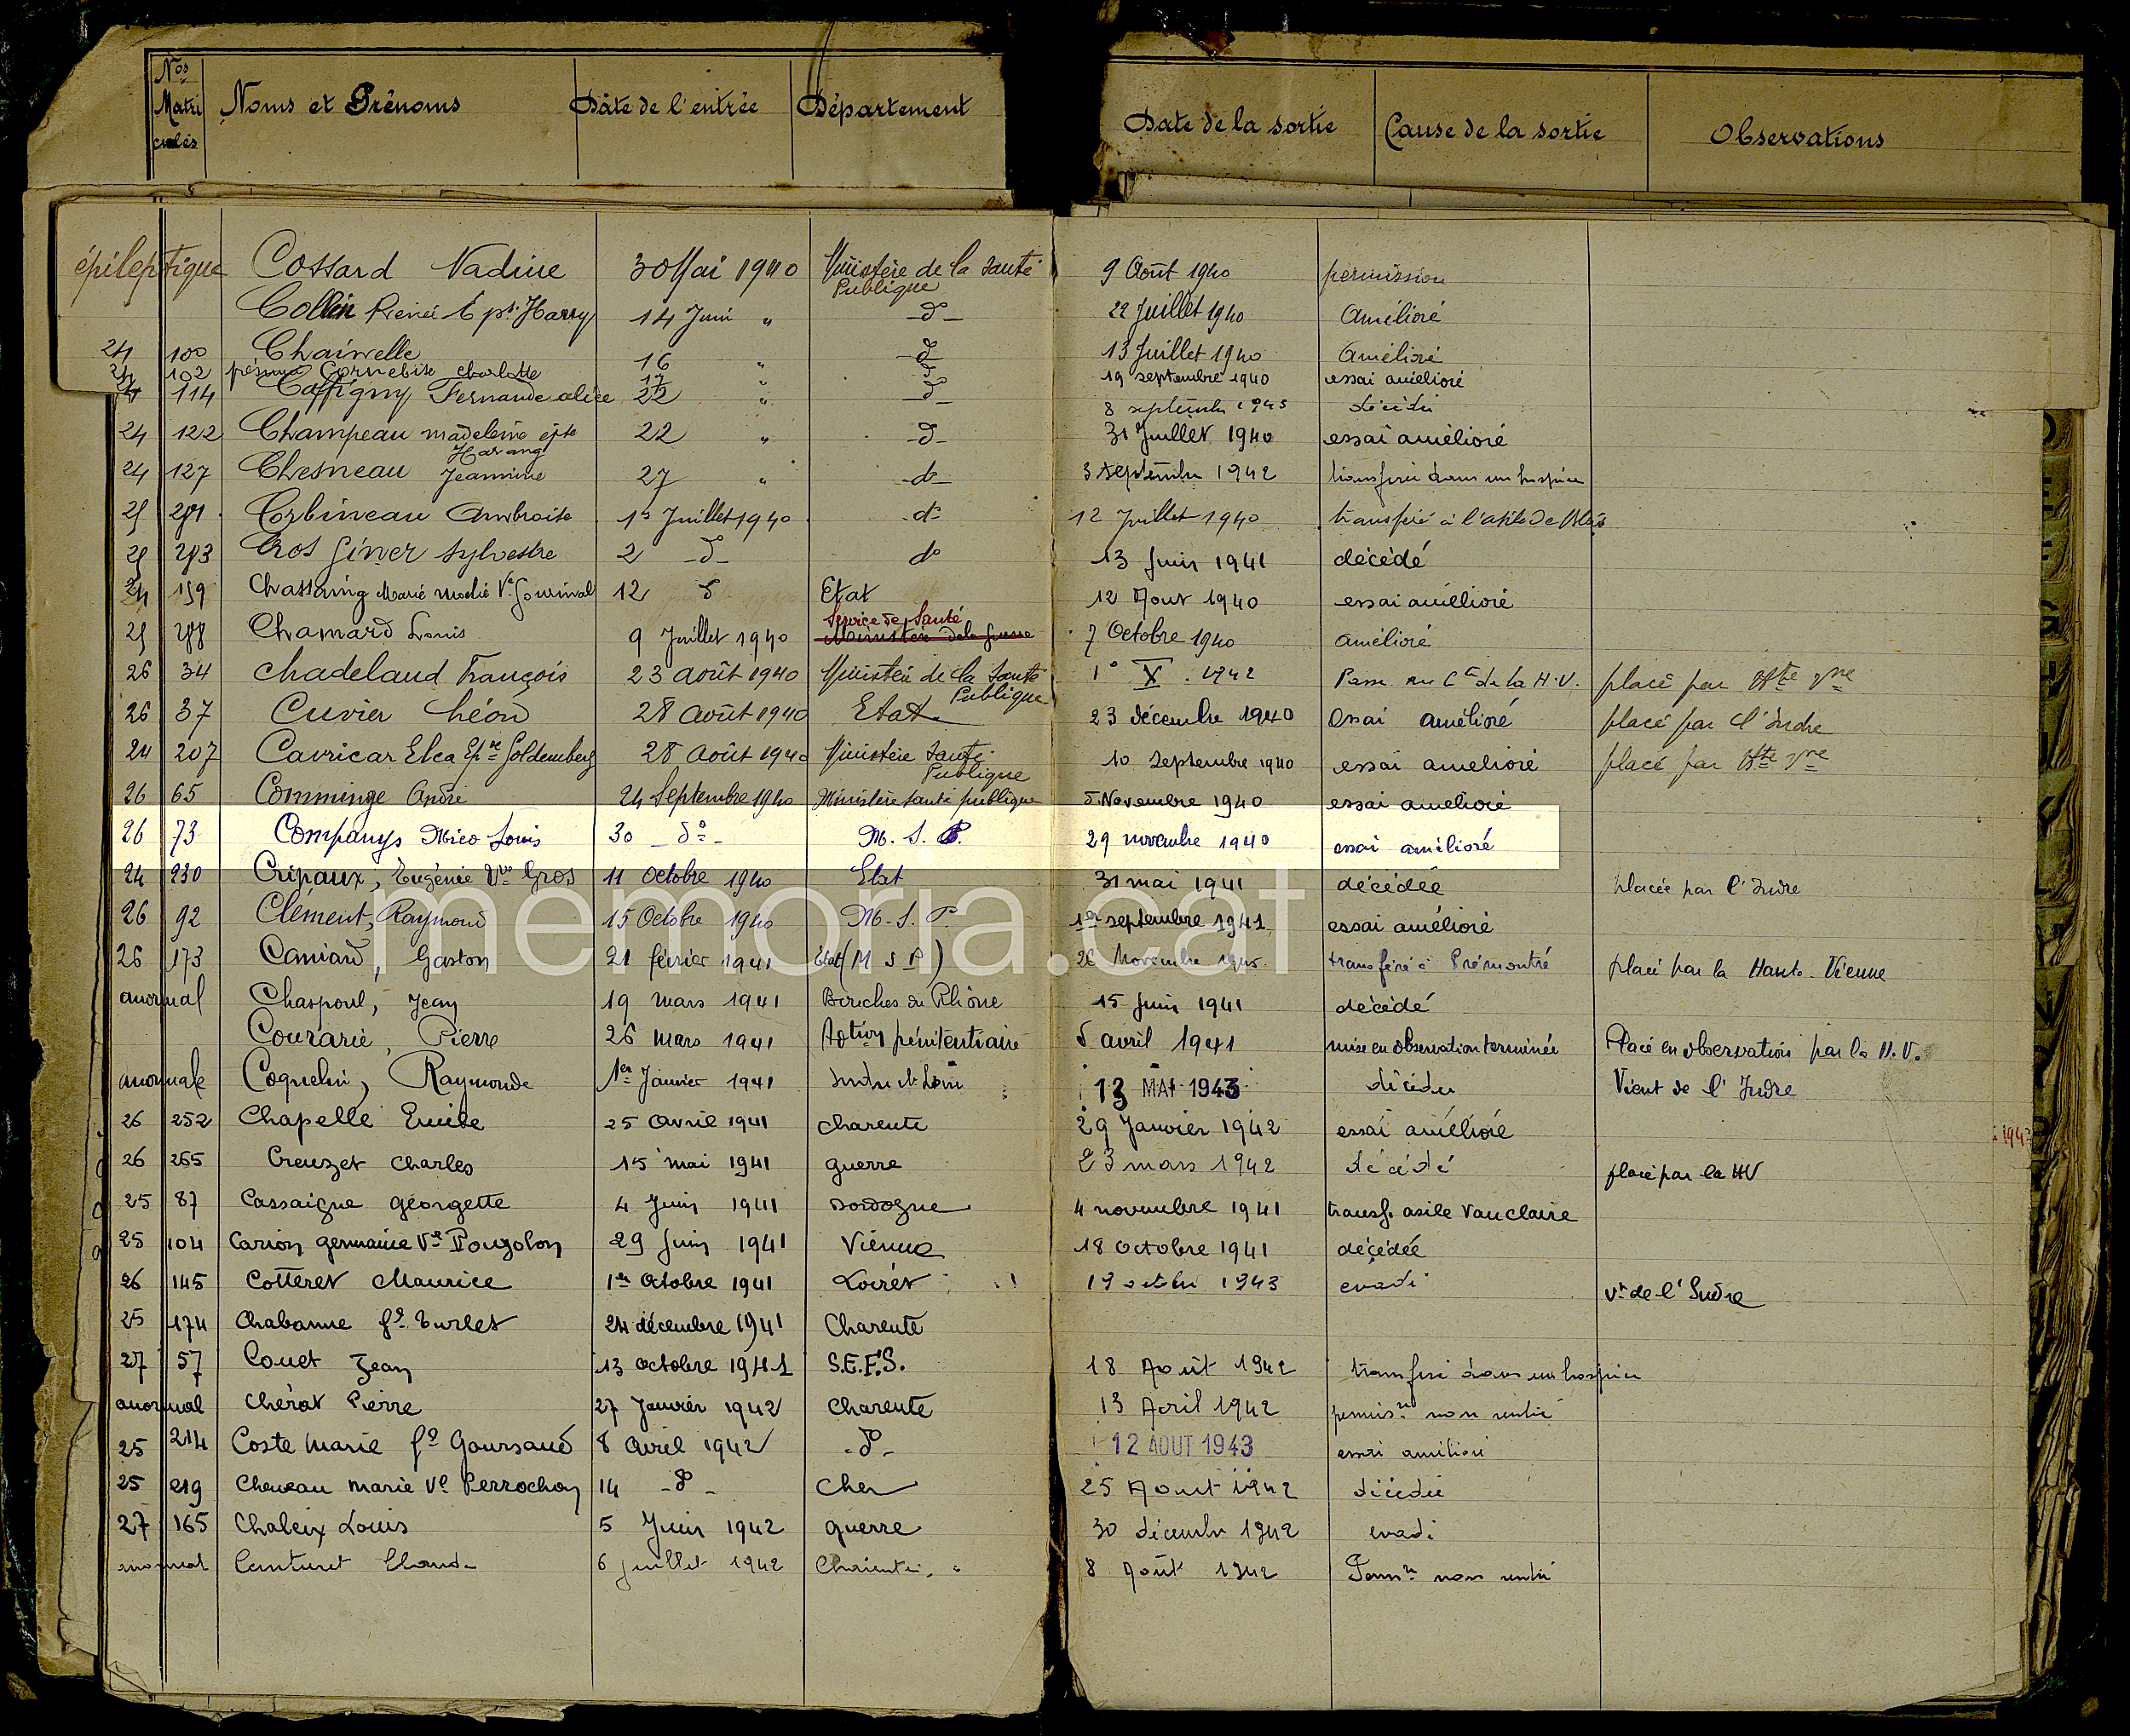 Nos Matri cules Noms et Prénoms Date de l'entrée Département Date de la sortie Cause de la sortie Observations
épileptique Cossard Nadine 30 Mai 1940 Ministère de la Santé Publique 9 Août 1940 permission
Collin Renée Epse Harry 14 Juin " -do- 22 Juillet 1940 Amélioré
24 100 Chainelle 16 " -do- 13 Juillet 1940 Amélioré
24 102 présumé Cornebise Charlotte 17 " do 19 septembre 1940 essai amélioré
24 114 Coffigny Fernande alice 22 " -do- 8 septembre 1945 décédée
24 122 Champeau madeleine épse Harang 22 " -do- 31 Juillet 1940 essai amélioré
24 127 Chesneau Jeannine 27 " -do- 3 septembre 1942 transférée dans un hospice
25 291 Corbineau Ambroise 1er Juillet 1940 do 12 Juillet 1940 transféré à l'asile de Blois
25 293 Cros Giner Sylvestre 2 -do- do 13 Juin 1941 décédé
24 159 Chassaing Marie Ve Gourinal 12 do Etat 12 Aout 1940 essai amélioré
25 298 Chamard Louis 9 Juillet 1940 Service de Santé Ministère de la Guerre 7 Octobre 1940 amélioré
26 34 Chadeland François 23 août 1940 Ministère de la Santé Publique 1o X. 1942 Passe au Cte de la H.V. placé par Hte Vne
26 37 Cuvier Léon 28 août 1940 Etat 23 décembre 1940 Essai amélioré placé par l'Indre
24 207 Cavricar Elca Epse Goldemberg 28 août 1940 Ministère Santé Publique 10 septembre 1940 essai amélioré placé par Hte Vne
26 65 Comminge André 24 Septembre 1940 Ministère santé publique 5 Novembre 1940 essai amélioré
26 73 Companys Mico Louis 30 -do- M. S. P. 29 novembre 1940 essai amélioré
24 230 Cripaux, Eugénie Vve Gros 11 Octobre 1940 Etat 31 mai 1941 décédée placée par l'Indre
26 92 Clément, Raymond 15 Octobre 1940 M. S. P. 1er septembre 1941 essai amélioré
memoria.cat
26 173 Caniard, Gaston 21 février 1941 Etat (M S P) 26 Novembre 1945 transféré à Prémontré placé par la Haute-Vienne
anormal Chaspoul, Jean 19 mars 1941 Bouches du Rhône 15 Juin 1941 décédé
Courarie, Pierre 26 mars 1941 Adtion pénitentiaire 5 avril 1941 mise en observation terminée Placé en observation par la H.V.
anormale Coquelin, Raymonde 1er Janvier 1941 Indre et Loire 13 MAI 1943 décédée Vient de l'Indre
26 252 Chapelle Emile 25 avril 1941 Charente 29 Janvier 1942 essai amélioré
26 265 Creuzet Charles 15 mai 1941 guerre 23 mars 1942 décédé placé par la HV
25 87 Cassaigne Georgette 4 Juin 1941 Dordogne 4 novembre 1941 transf. asile Vauclaire
25 104 Carion germaine Ve Pougolon 29 Juin 1941 Vienne 18 octobre 1941 décédée
26 145 Cotteret Maurice 1er Octobre 1941 Loiret 19 octobre 1943 évadé vt de l'Indre
25 174 Chabanne fe Turlet 24 décembre 1941 Charente
27 57 Couet Jean 13 octobre 1941 S.E.F.S. 18 Août 1942 transféré dans un hospice
anormal Chérat Pierre 27 Janvier 1942 Charente 13 Avril 1942 permison non rentré
25 214 Coste Marie fe Goursaud 8 avril 1942 -do- 12 AOUT 1943 essai amélioré
25 219 Cheneau Marie Ve Perrochon 14 -do- Cher 25 Aout 1942 décédée
27 165 Chaleix Louis 5 Juin 1942 guerre 30 décembre 1942 évadé
anormal Ceinturet Claude 6 juillet 1942 Charente 8 Août 1942 Permon non rentré